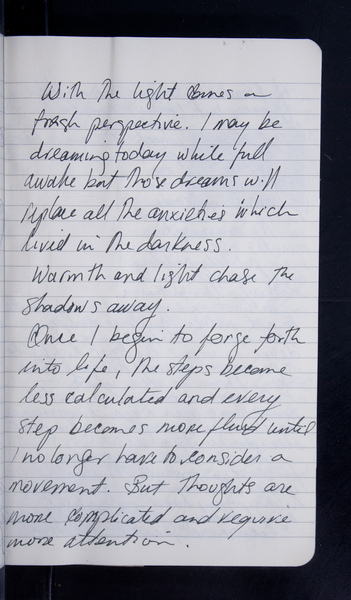 With the light comes a
fresh perspective. I may be
dreaming today while full
awake but those dreams will
replace all the anxieties which
lived in the darkness.
Warmth and light chase the
shadows away.
Once I begin to forge forth
into life, the steps become
less calculated and every
step becomes more fluid until
I no longer have to consider a
movement. But thoughts are
more complicated and require
more attention.